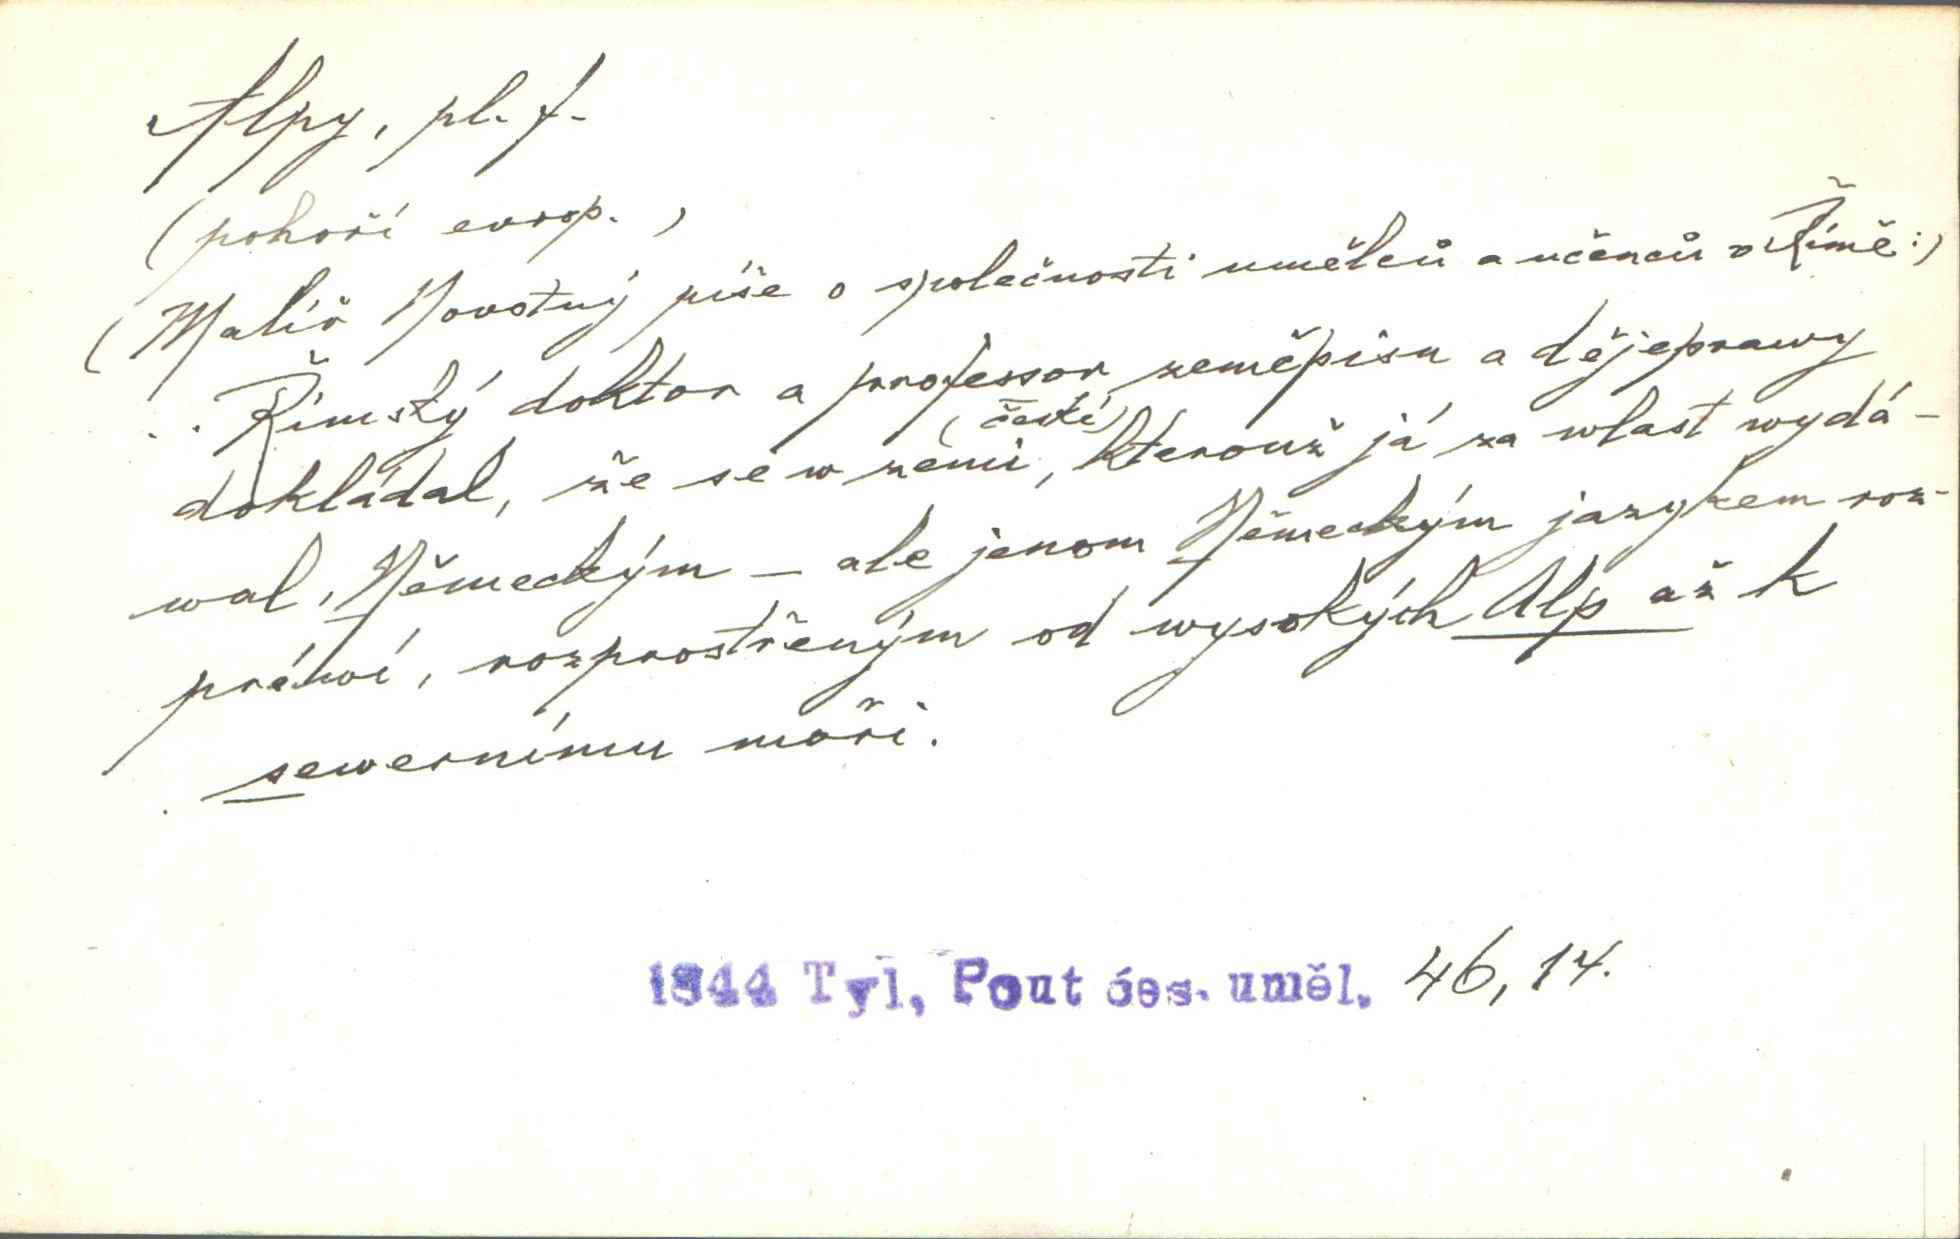 Alpy, pl. f.
(pohoří evrop.)
(Malíř Novotný píše o společnosti umělců a učenců v Římě:)
.. Římský doktor a professor zeměpisu a dějeprawy
(české)
dokládal, že se w zemi, kterouž já za wlast wydá-
wal, Německým – ale jenom Německým jazykem roz-
práwí, rozprostřeným od wysokých Alp až k
sewernímu moři.
1844 Tyl, Pout čes. uměl. 46, 14.